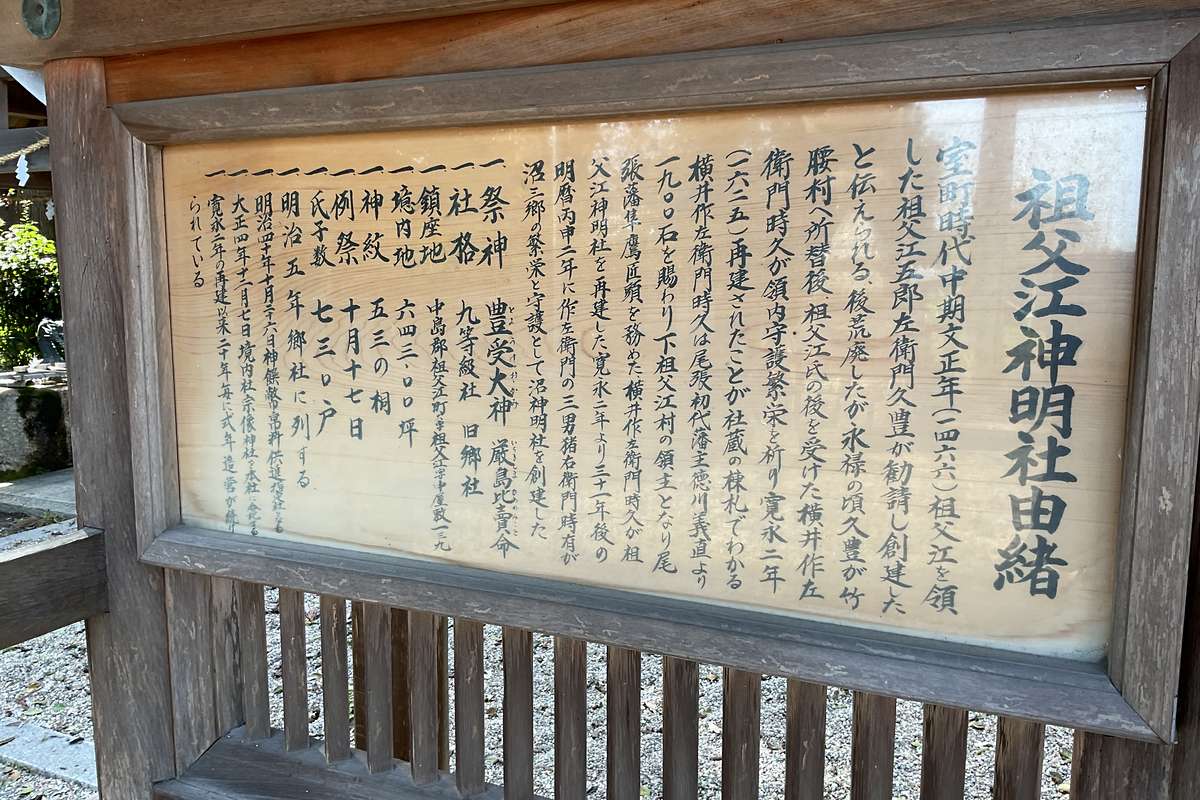 祖父江神明社由緒
室町時代中期文正年(一四六六)祖父江を領
した祖父江五郎左衛門久豊が勧請し創建した
と伝えられる、後荒廃したが永禄の頃久豊が竹
腰村へ所替後、祖父江氏の後を受けた横井作左
衛門時久が領内守護繁栄を祈り寛永二年
(一六二五)再建されたことが社蔵の棟札でわかる
横井作左衛門時久は尾張初代藩主徳川義直より
一九〇〇石を賜わり下祖父江村の領主となり尾
張藩隼鷹匠頭を務めた横井作左衛門時久が祖
父江神明社を再建した寛永二年より三十一年後の
明暦丙申二年に作左衛門の三男猪右衛門時有が
沼三郷の繁栄と守護として沼神明社を創建した
一祭神 豊受大神 厳島比売命
一社格 九等級社 旧郷社
一鎮座地 中島郡祖父江町字祖父江字中屋敷一三九
一境内地 六四三、〇〇坪
一神紋 五三の桐
一例祭 十月十七日
一氏子数 七三〇戸
一明治五年郷社に列する
一明治四十年十月二十六日神饌幣帛料供進指定社となる
一大正四年十二月七日境内社宗像神社を本社へ合する
一寛永二年の再建以来二十年毎に式年造営が続け
られている